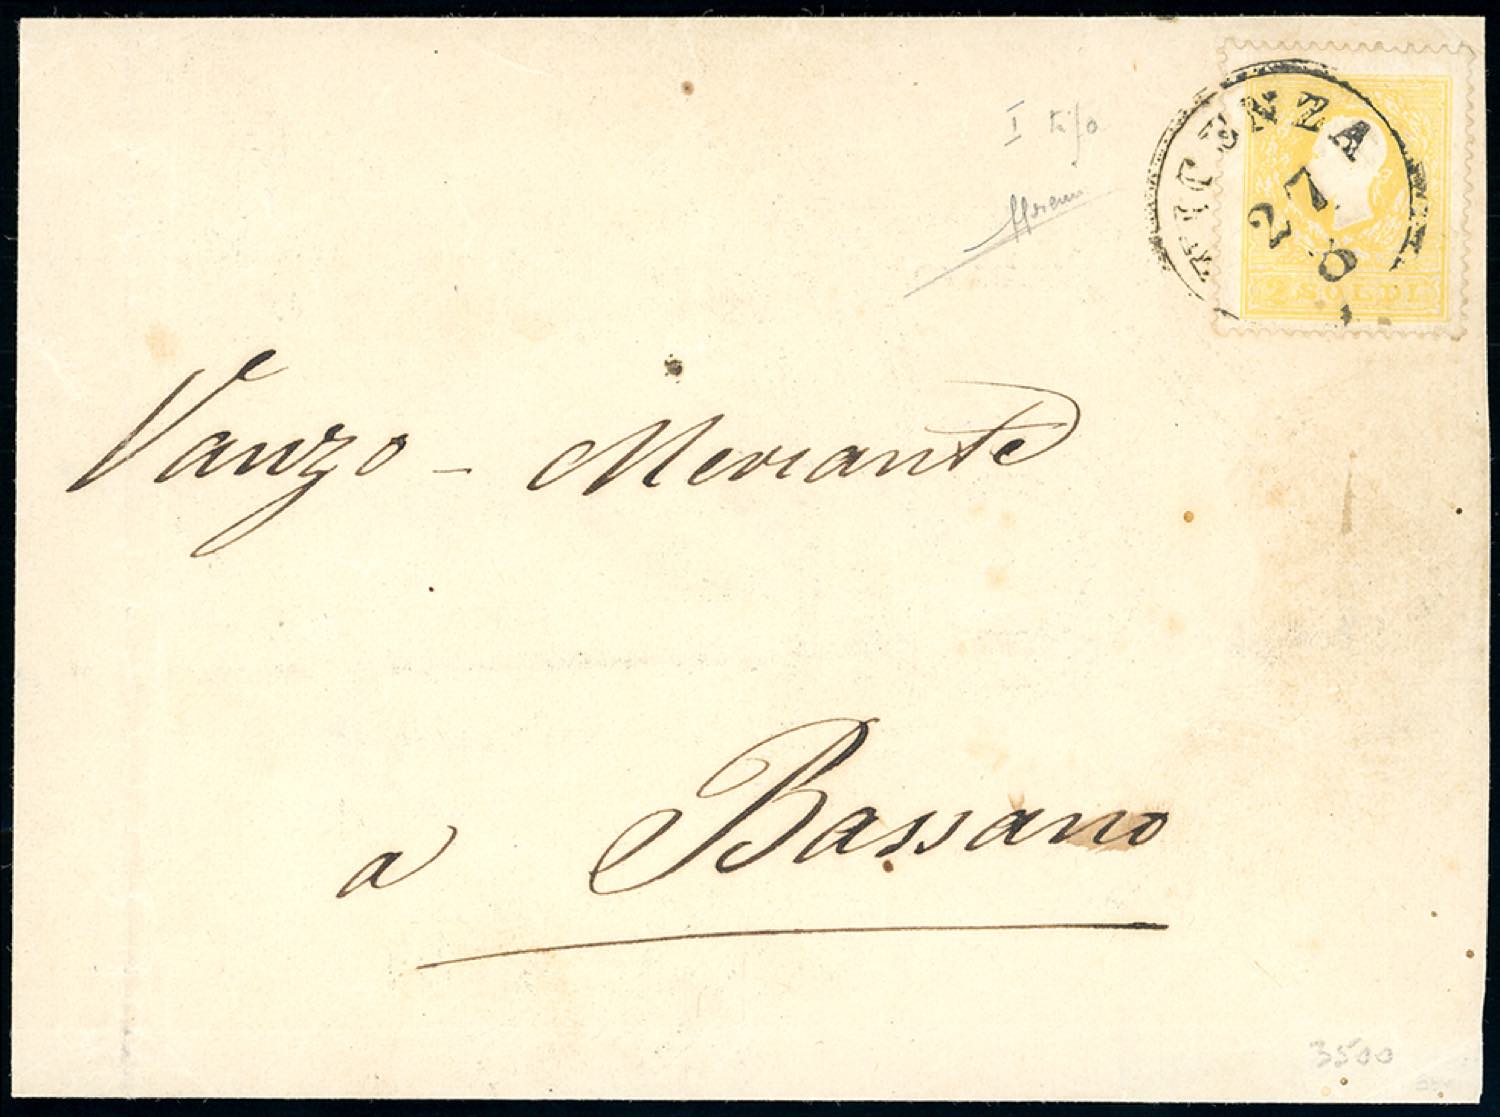 VICENZA
27
8
2 SOLDI
I tipo
Vanzo - Meviante
a Bassano
3500